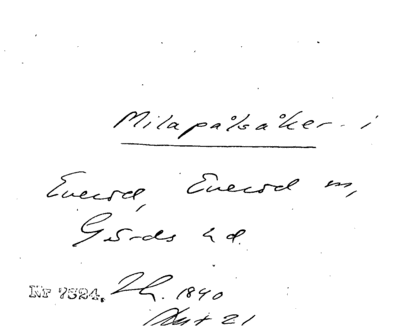 Milapålsåker i
Everöd, Everöd sn,
Gärds hd.
Nr 7524. Lh. 1840
Akt 21